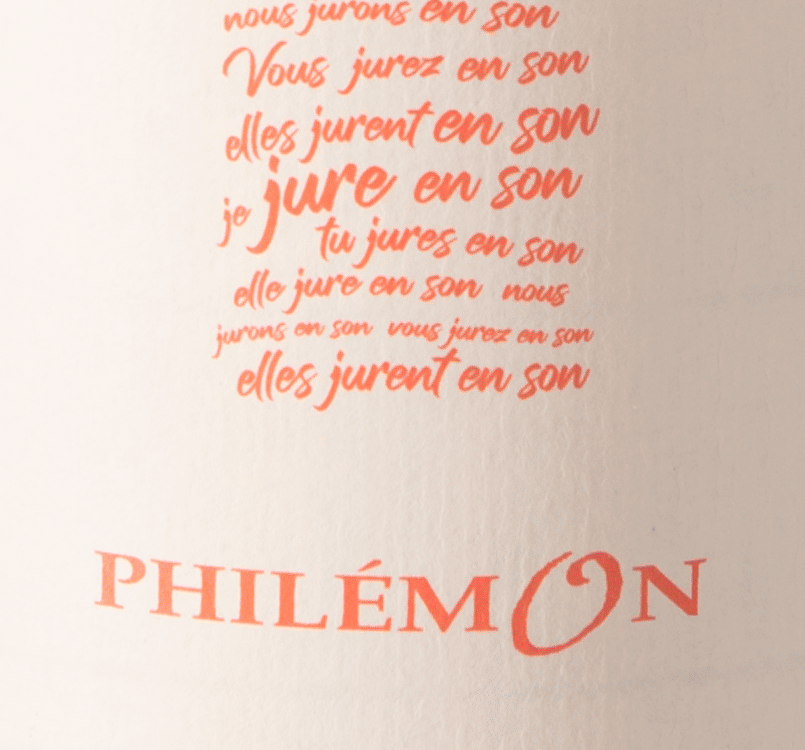 nous jurons en son
Vous jurez en son
elles jurent en son
je jure en son
tu jures en son
elle jure en son nous
jurons en son vous jurez en son
elles jurent en son
PHILÉMON